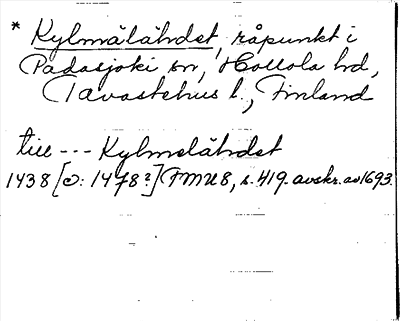 * Kylmälähdet, råpunkt i
Padasjoki sn, Hollola hd,
(Tavastehus l., Finland
till --- Kylmelähdet
1438 [ɔ: 1478?] FMU 8, s. 419. avskr. av 1693.